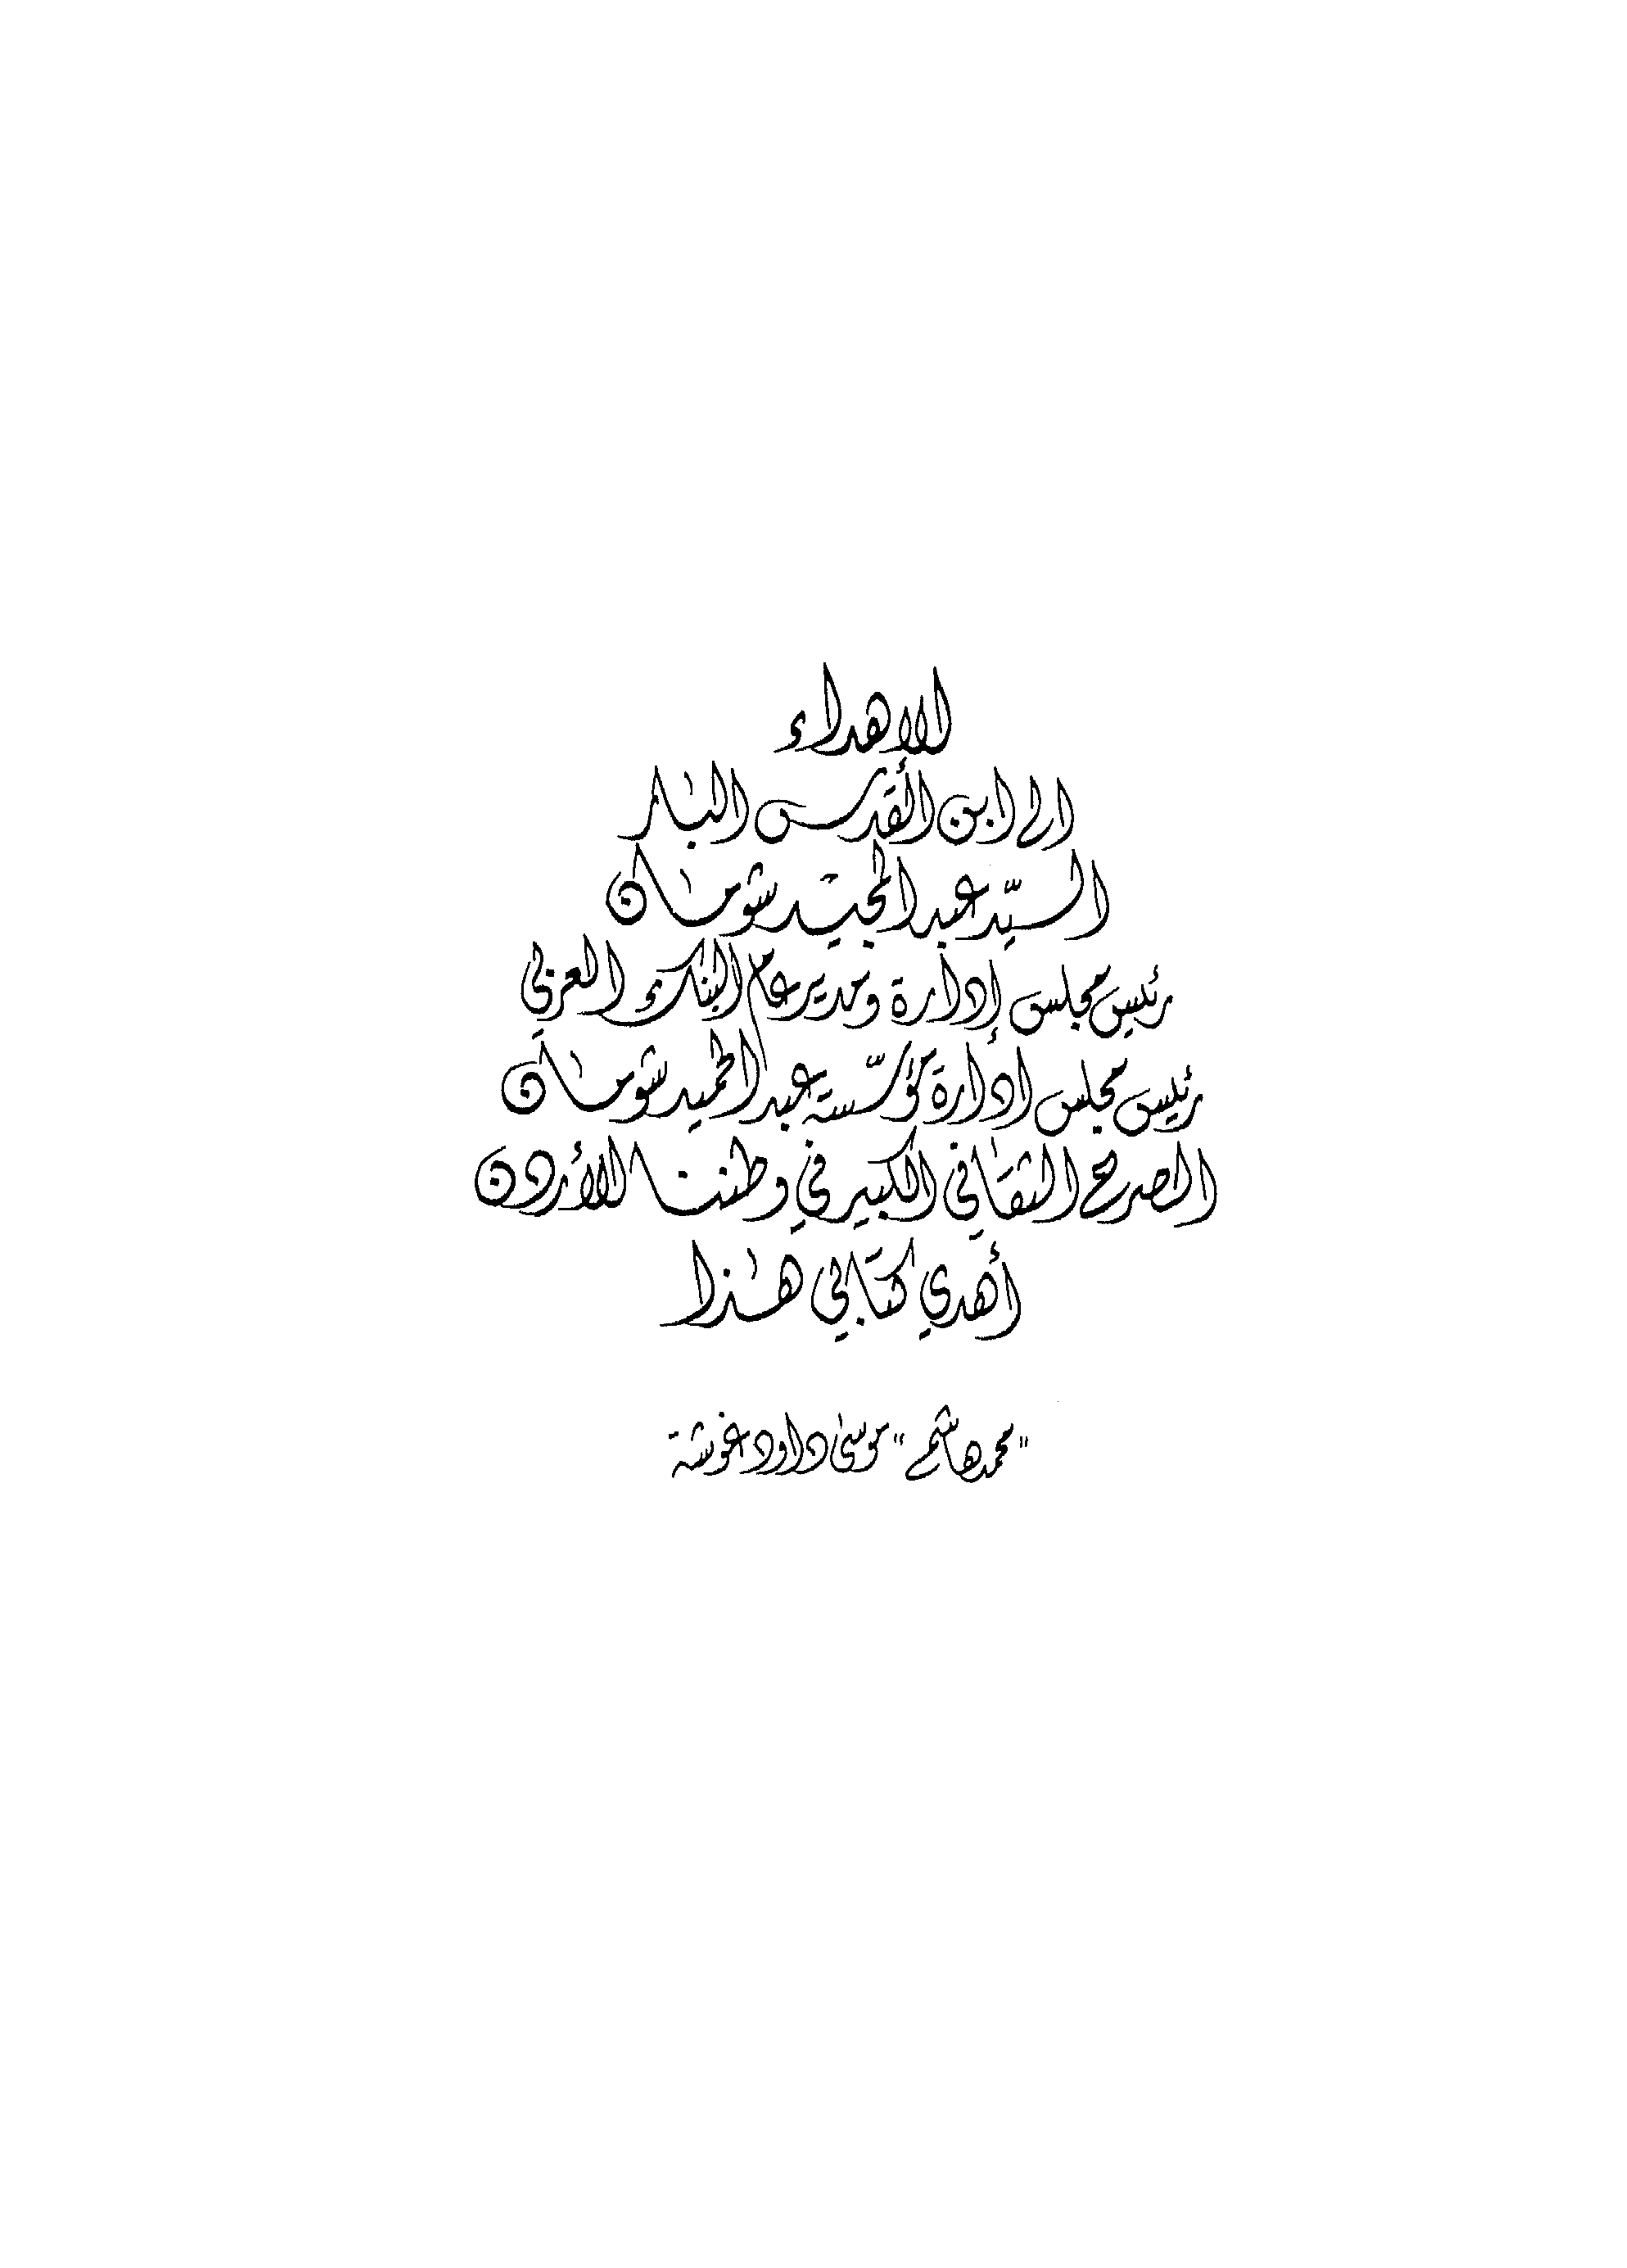 الاهداء
الى ابن القدس البار
السيّد عبد المجيد شومان
رئيس مجلس إدارة ومدير عام البنك العربي
رئيس مجلس إدارة مؤسّسة عبد الحميد شومان
الصرح الثقافي الكبير في وطننا الأردن
أهدي كتابي هذا
"محمد هاشم" موسى داود غوشة